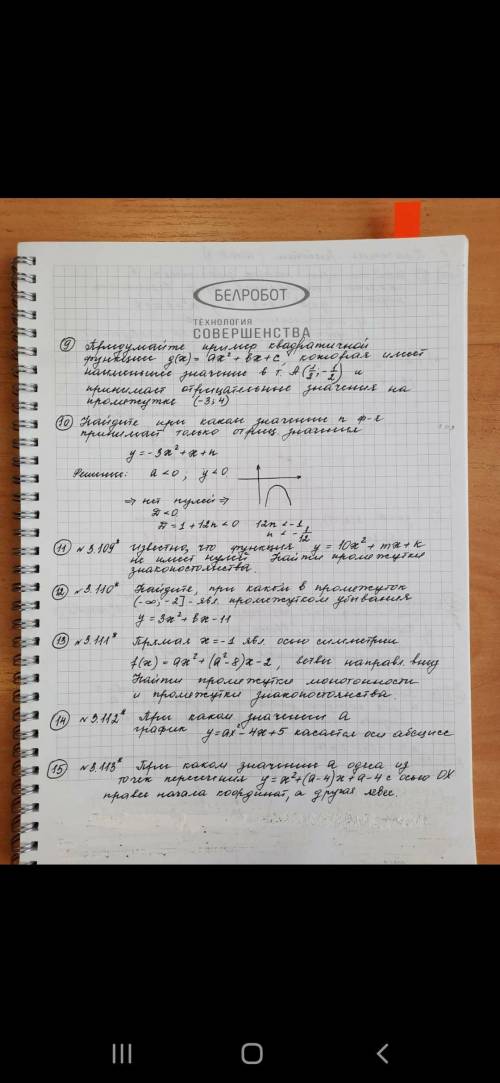 БЕЛРОБОТ
ТЕХНОЛОГИЯ
СОВЕРШЕНСТВА
9 Придумайте пример квадратичной
функции g(x) = ax² + bx + c, которая имеет
наименьшее значение в т. A(1/2; -1/2) и
принимает отрицательные значения на
промежутке (-3; 4)
10 Найдите при каком значении n ф-я
принимает только отриц. значения
y = -3x² + x + n
Решение: a < 0 ; y < 0
⇒ нет нулей ⇒
D < 0
D = 1 + 12n < 0 12n < -1
n < -1/12
11 №3.109* Известно, что функция y = 10x² + mx + k
не имеет нулей. Найти промежутки
знакопостоянства.
12 №3.110* Найдите, при каком b промежуток
(-∞; -2] - явл. промежутком убывания
y = 3x² + bx - 11
13 №3.111* Прямая x = -1 явл осью симметрии
f(x) = ax² + (a² - 8)x - 2, ветви направл. вниз
Найти промежутки монотонности
и промежутки знакопостоянства.
14 №3.112* При каком значении a
график y = ax² - 4x + 5 касается оси абсцисс
15 №3.113* При каком значении a одна из
точек пересечения y = x² + (a-4)x + a - 4 с осью OX
правее начала координат, а другая левее.